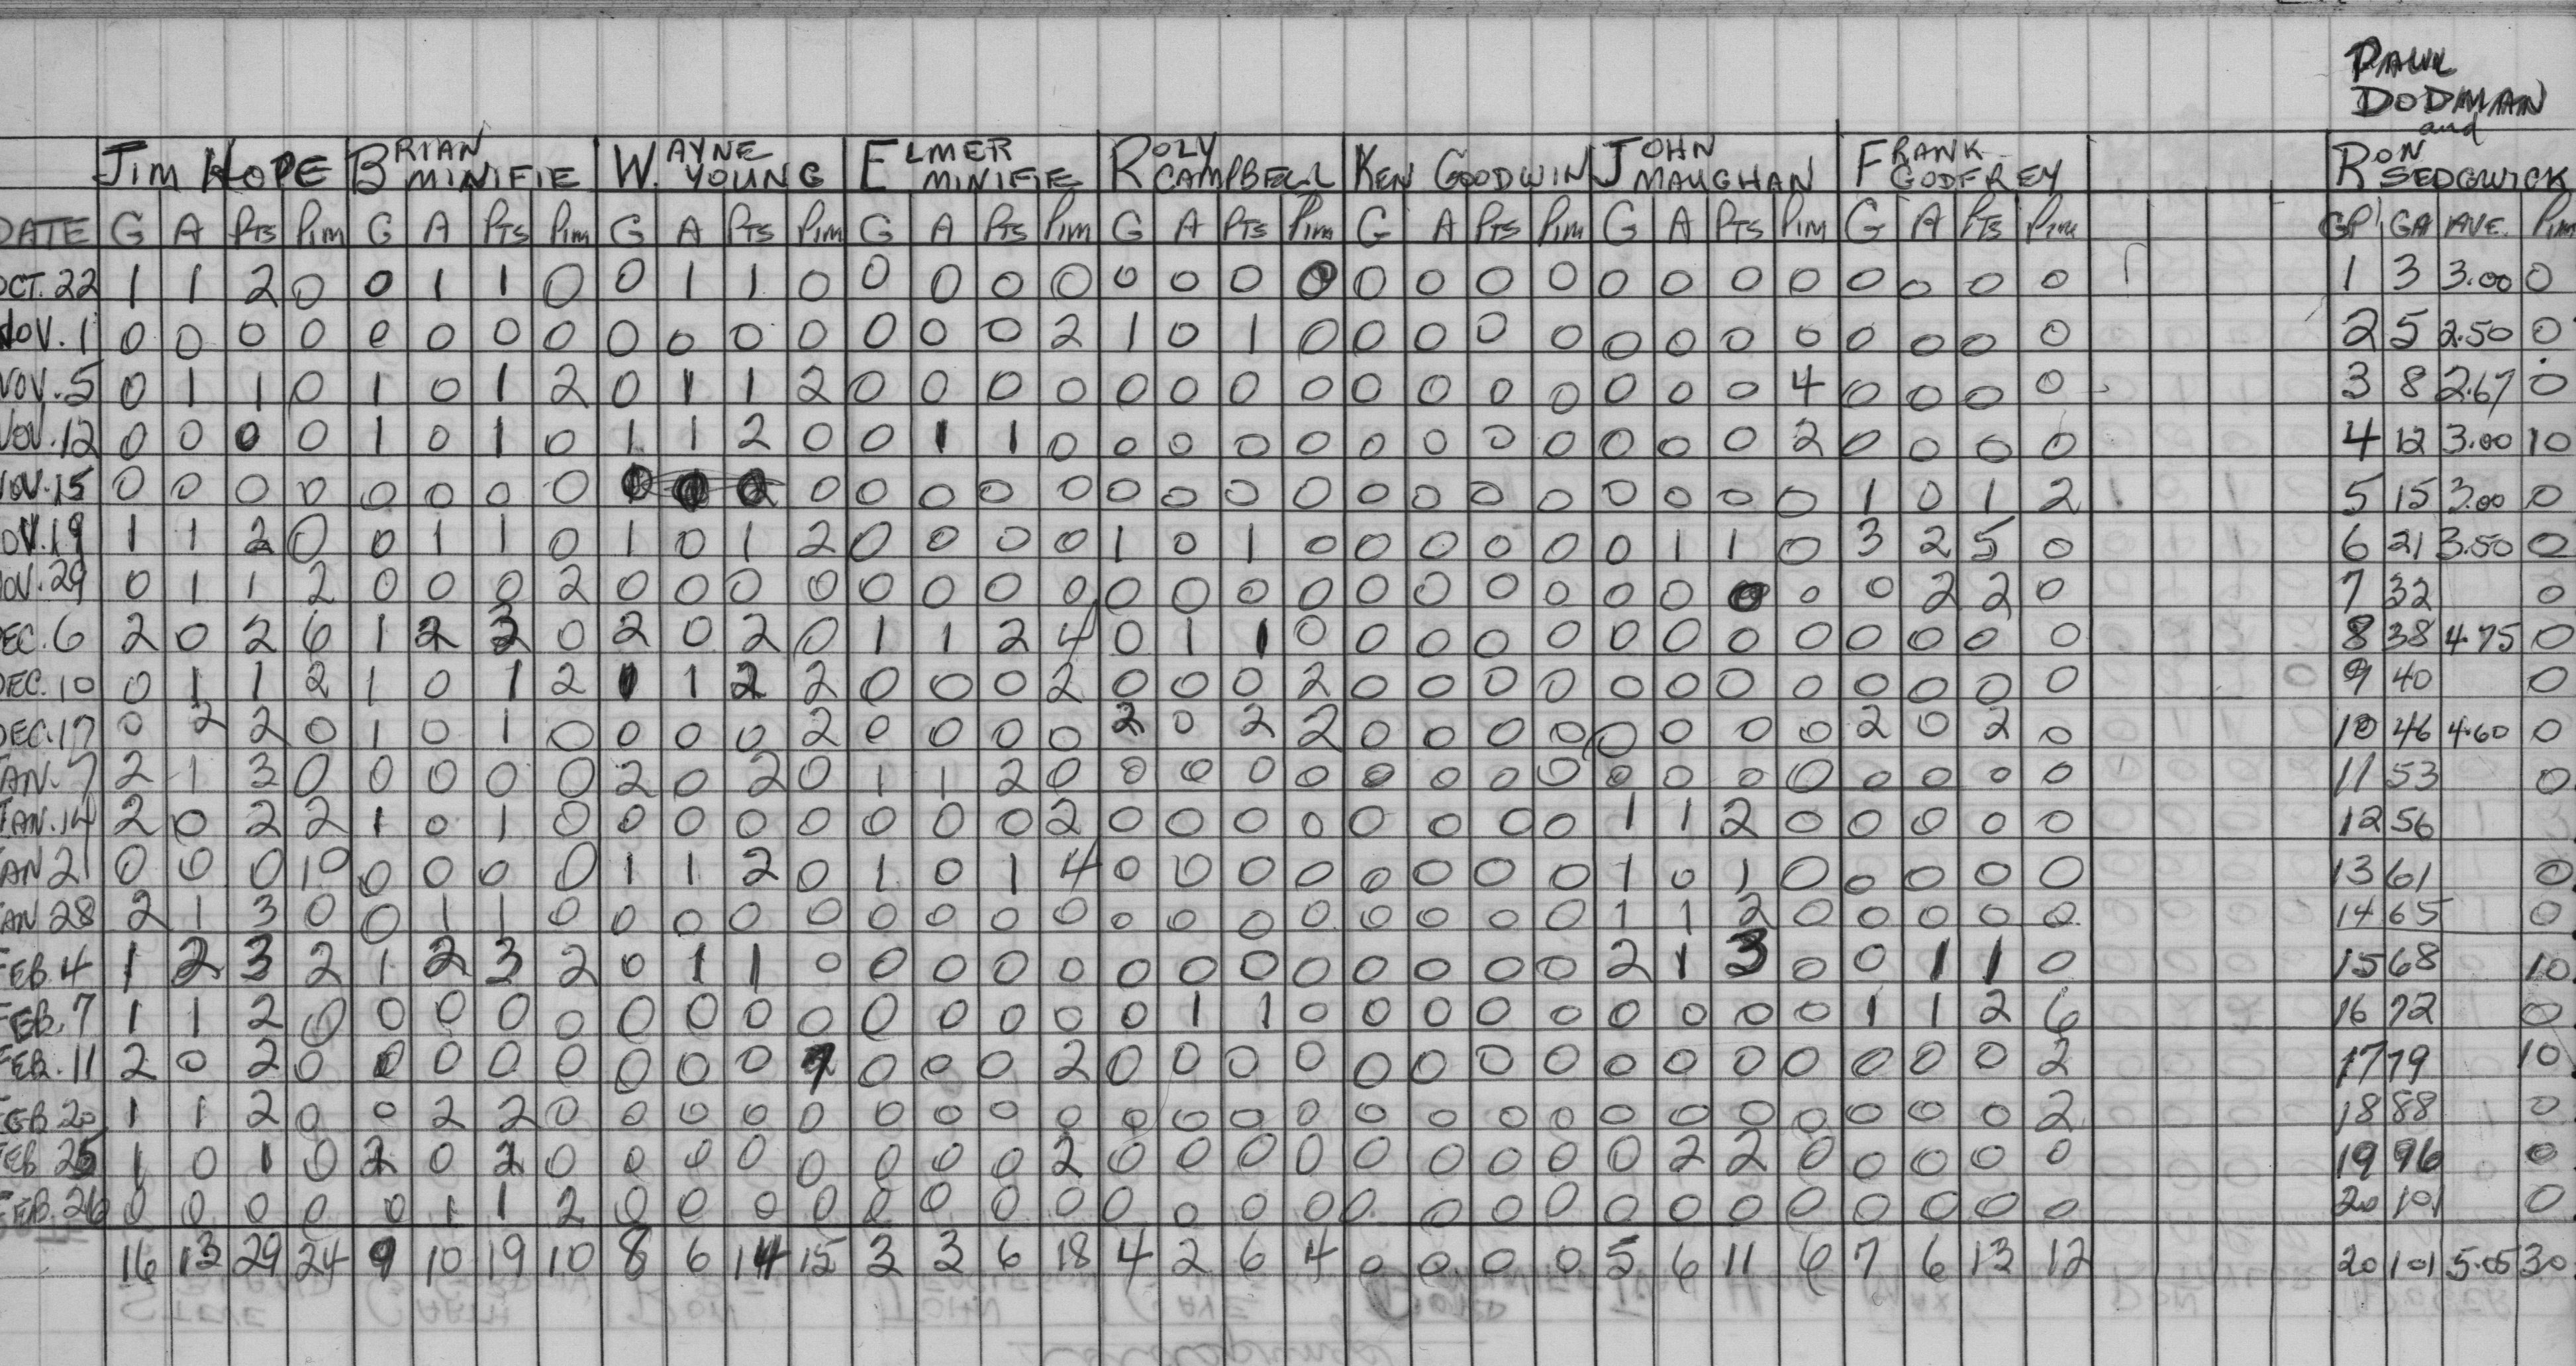 PAUL
DODMAN
and
JIM HOPE BRIAN MINIFIE WAYNE YOUNG ELMER MINIFIE ROLY CAMPBELL KEN GOODWIN JOHN MAUGHAN FRANK GODFREY RON SEDGWICK
DATE G A PTS PIM G A PTS PIM G A PTS PIM G A PTS PIM G A PTS PIM G A PTS PIM G A PTS PIM G A PTS PIM GP GA AVE. PIM
OCT. 22 1 1 2 0 0 1 1 0 0 1 1 0 0 0 0 0 0 0 0 0 0 0 0 0 0 0 0 0 0 0 0 0 1 3 3.00 0
NOV. 1 0 0 0 0 0 0 0 0 0 0 0 0 0 0 0 2 1 0 1 0 0 0 0 0 0 0 0 0 0 0 0 0 2 5 2.50 0
NOV. 5 0 1 1 0 1 0 1 2 0 1 1 2 0 0 0 0 0 0 0 0 0 0 0 0 0 0 0 4 0 0 0 0 3 8 2.67 0
NOV. 12 0 0 0 0 1 0 1 0 1 1 2 0 0 1 1 0 0 0 0 0 0 0 0 0 0 0 0 2 0 0 0 0 4 12 3.00 10
NOV. 15 0 0 0 0 0 0 0 0 0 0 0 0 0 0 0 0 0 0 0 0 0 0 0 0 0 1 0 1 2 5 15 3.00 0
NOV. 19 1 1 2 0 0 1 1 0 1 0 1 2 0 0 0 0 1 0 1 0 0 0 0 0 0 1 1 0 3 2 5 0 6 21 3.50 0
NOV. 29 0 1 1 2 0 0 0 2 0 0 0 0 0 0 0 0 0 0 0 0 0 0 0 0 0 0 0 0 0 2 2 0 7 32 0
DEC. 6 2 0 2 6 1 2 3 0 2 0 2 0 1 1 2 4 0 1 1 0 0 0 0 0 0 0 0 0 0 0 0 0 8 38 4.75 0
DEC. 10 0 1 1 2 1 0 1 2 1 1 2 2 0 0 0 2 0 0 0 2 0 0 0 0 0 0 0 0 0 0 0 0 9 40 0
DEC. 17 0 2 2 0 1 0 1 0 0 0 0 2 0 0 0 0 2 0 2 2 0 0 0 0 0 0 0 0 2 0 2 0 10 46 4.60 0
JAN. 7 2 1 3 0 0 0 0 0 2 0 2 0 1 1 2 0 0 0 0 0 0 0 0 0 0 0 0 0 0 0 0 0 11 53 0
JAN. 14 2 0 2 2 1 0 1 0 0 0 0 0 0 0 0 2 0 0 0 0 0 0 0 0 1 1 2 0 0 0 0 0 12 56
JAN 21 0 0 0 10 0 0 0 0 1 1 2 0 1 0 1 4 0 0 0 0 0 0 0 0 1 0 1 0 0 0 0 0 13 61 0
JAN 28 2 1 3 0 0 1 1 0 0 0 0 0 0 0 0 0 0 0 0 0 0 0 0 0 1 1 2 0 0 0 0 0 14 65 0
FEB. 4 1 2 3 2 1 2 3 2 0 1 1 0 0 0 0 0 0 0 0 0 0 0 0 0 2 1 3 0 0 1 1 0 15 68 10
FEB. 7 1 1 2 0 0 0 0 0 0 0 0 0 0 0 0 0 0 1 1 0 0 0 0 0 0 0 0 0 1 1 2 6 16 72 0
FEB. 11 2 0 2 0 0 0 0 0 0 0 0 0 0 0 2 0 0 0 0 0 0 0 0 0 0 0 0 0 0 0 2 17 79 10
FEB 20 1 1 2 0 0 2 2 0 0 0 0 0 0 0 0 0 0 0 0 0 0 0 0 0 0 0 0 0 0 0 0 2 18 88 0
FEB 25 1 0 1 0 2 0 2 0 0 0 0 0 0 0 0 2 0 0 0 0 0 0 0 0 0 2 2 0 0 0 0 0 19 96 0
FEB. 26 0 0 0 0 0 1 1 2 0 0 0 0 0 0 0 0 0 0 0 0 0 0 0 0 0 0 0 0 0 0 0 0 20 101 0
16 13 29 24 9 10 19 10 8 6 14 15 3 3 6 18 4 2 6 4 0 0 0 0 5 6 11 6 7 6 13 12 20 101 5.05 30